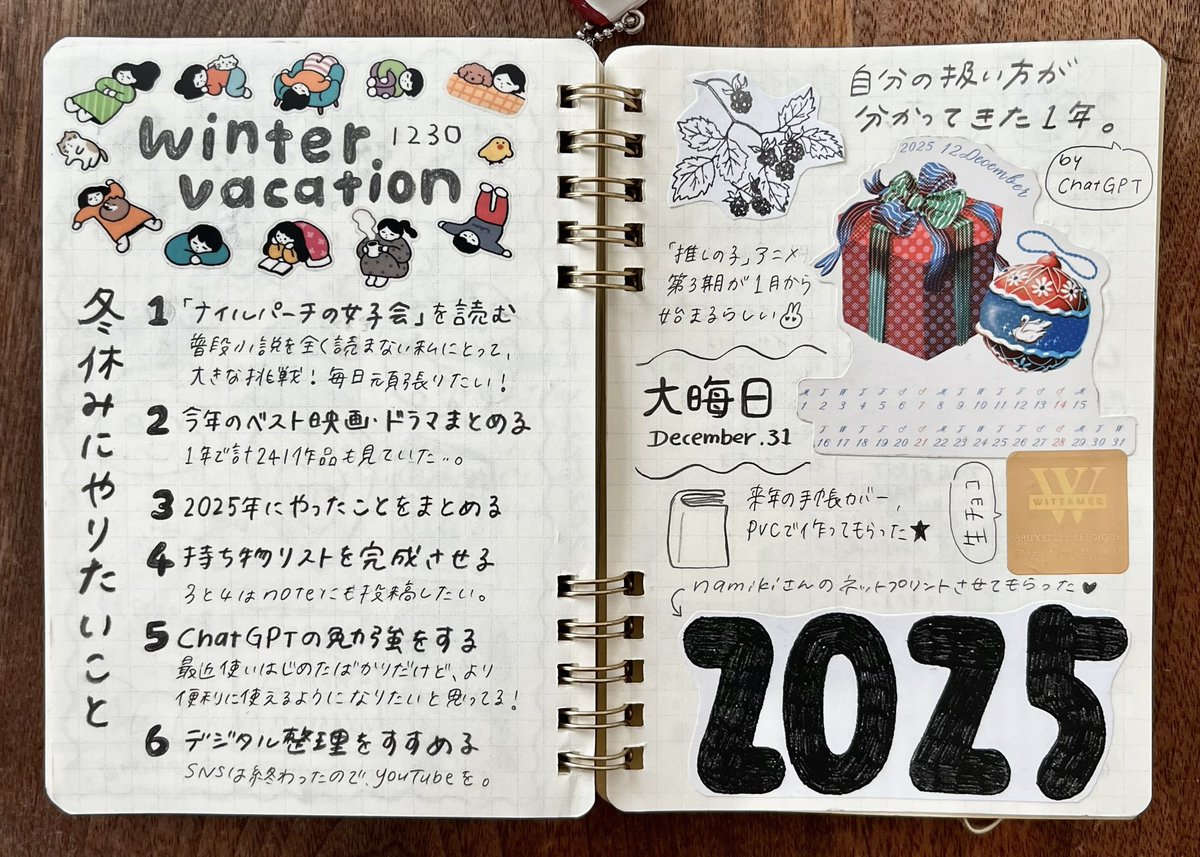 winter 1230
vacation
冬休みにやりたいこと
1 「ナイルパーチの女子会」を読む
普段小説を全く読まない私にとって、
大きな挑戦！毎日頑張りたい！
2 今年のベスト映画・ドラマまとめる
1年で計241作品も見ていた…。
3 2025年にやったことをまとめる
4 持ち物リストを完成させる
3と4はnoteにも投稿したい。
5 ChatGPTの勉強をする
最近使いはじめたばかりだけど、より
便利に使えるようになりたいと思ってる！
6 デジタル整理をすすめる
SNSは終わったので、YouTubeを。
自分の扱い方が
分かってきた1年。
by
ChatGPT
2025 12 December
「推しの子」アニメ
第3期が1月から
始まるらしい
大晦日
December.31
M T W T F S S M T W T F S S M
1 2 3 4 5 6 7 8 9 10 11 12 13 14 15
T W T F S S M T W T F S S M T W
16 17 18 19 20 21 22 23 24 25 26 27 28 29 30 31
来年の手帳カバー、
PVCで作ってもらった★
生チョコ
W
WITTAMER
BRUXELLES BELGIQUE
namikiさんのネットプリントさせてもらった♥
2025